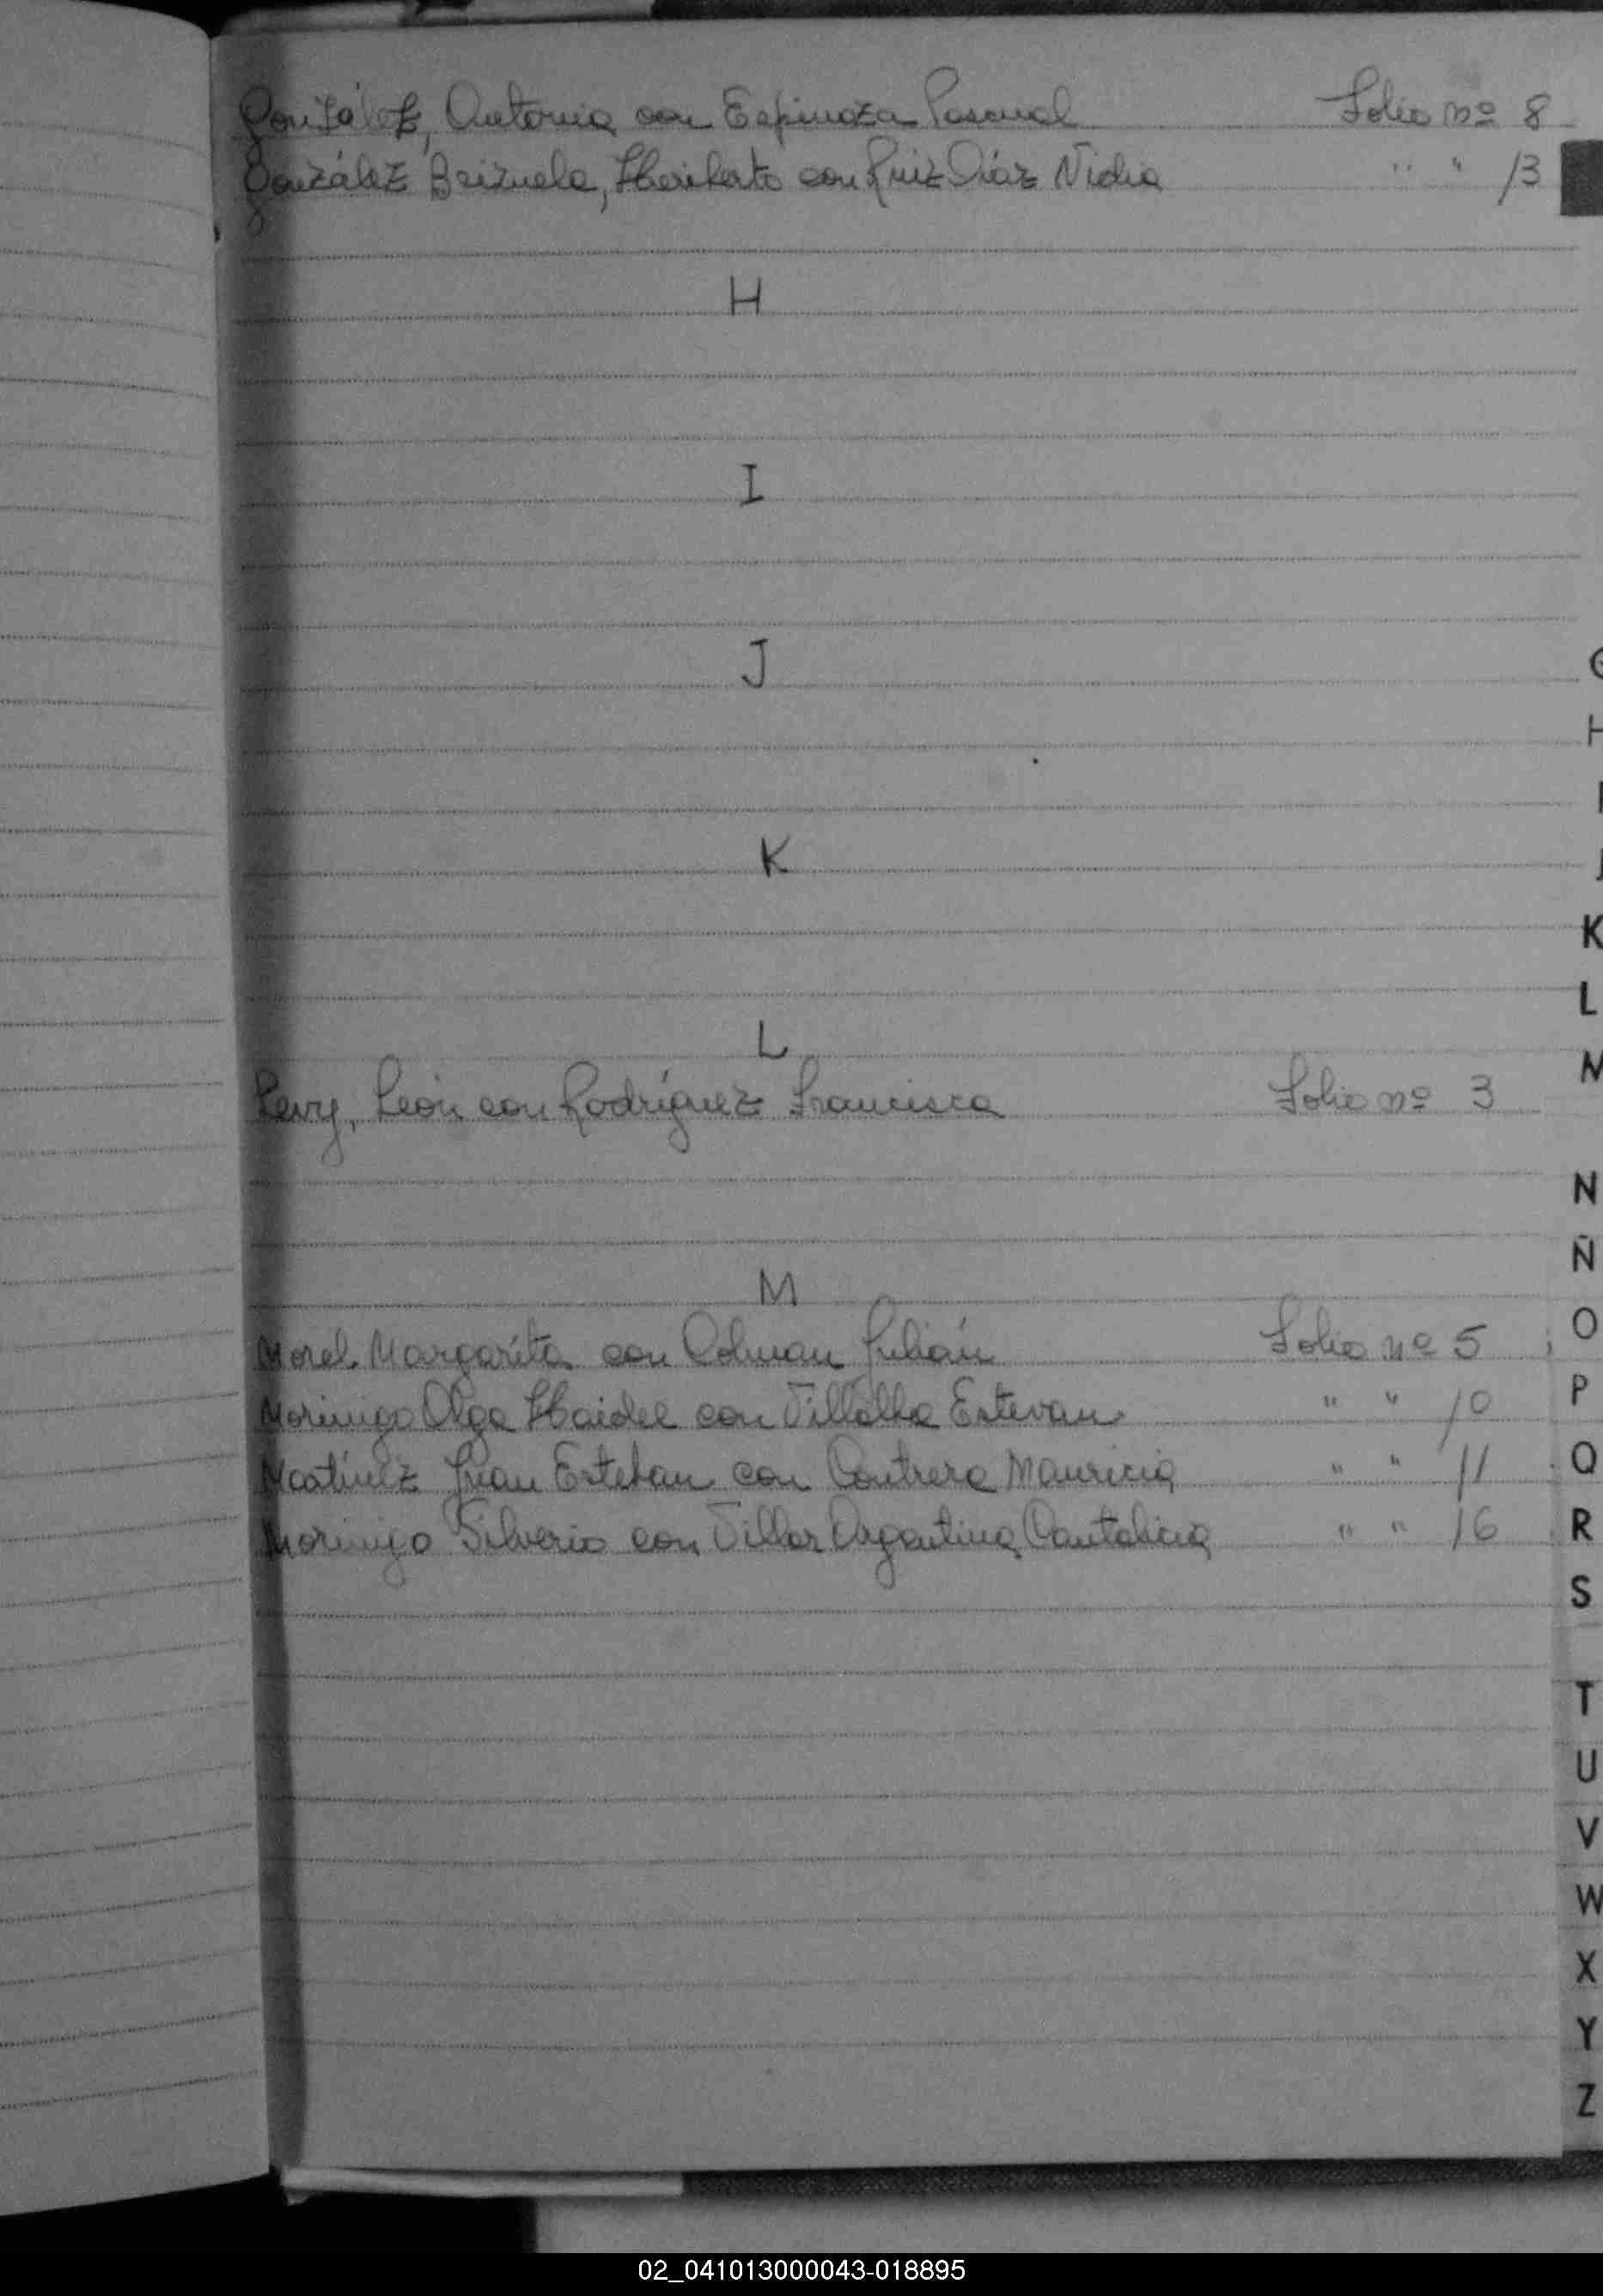 González, Antonia con Espinoza Pascual Folio nº 8
González Brizuela, Heriberto con Ruiz Díaz Nidia " " 13
H
I
J
K
L
Levy, León con Rodríguez Francisca Folio nº 3
M
Morel Margarita con Colman Julián Folio nº 5
Morinigo Olga Haidee con Villalba Estevan " " 10
Martínez Juan Esteban con Contrera Mauricia " " 11
Morinigo Silverio con Villar Argentina Cantalicia " " 16
G
H
I
J
K
L
M
N
Ñ
O
P
Q
R
S
T
U
V
W
X
Y
Z
02_041013000043-018895